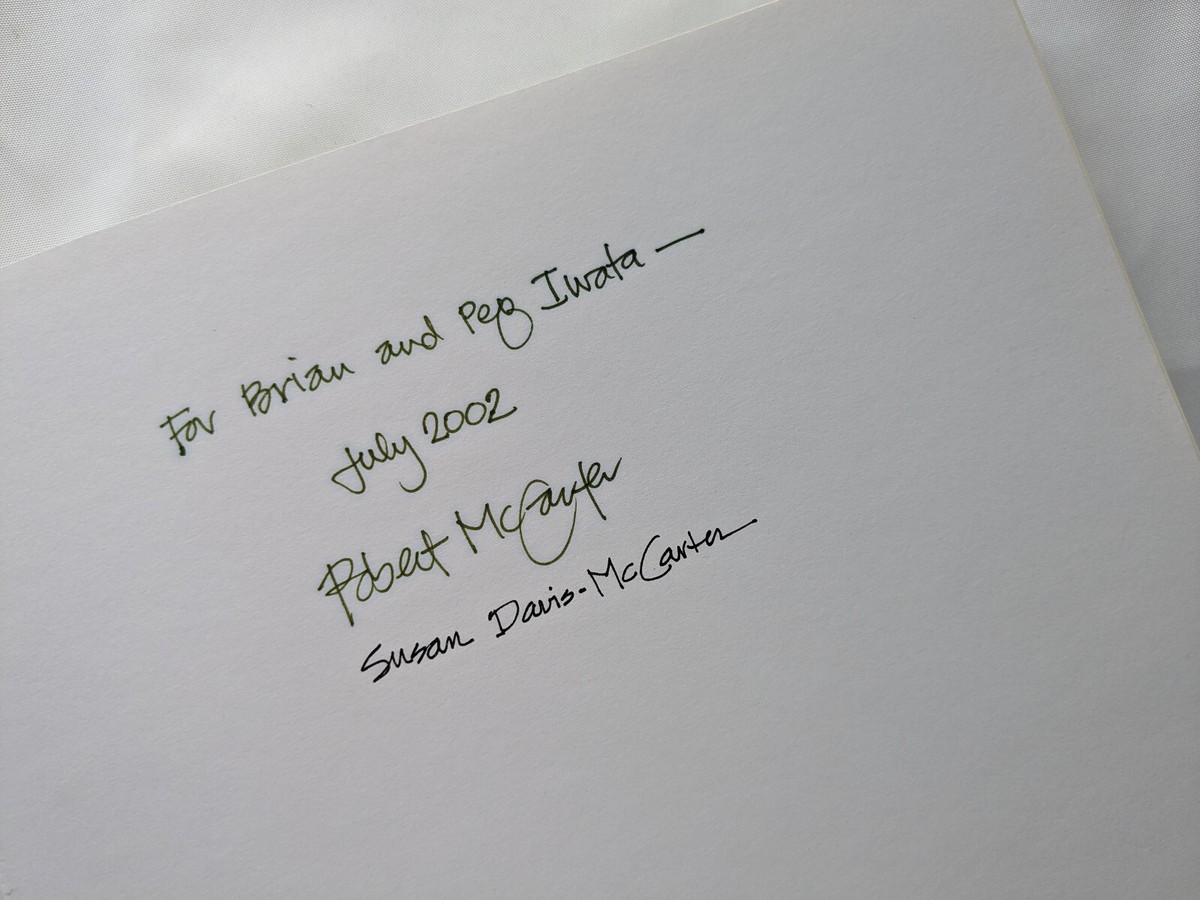 For Brian and Peg Iwata —
July 2002
Robert McCarter
Susan Davis-McCarter